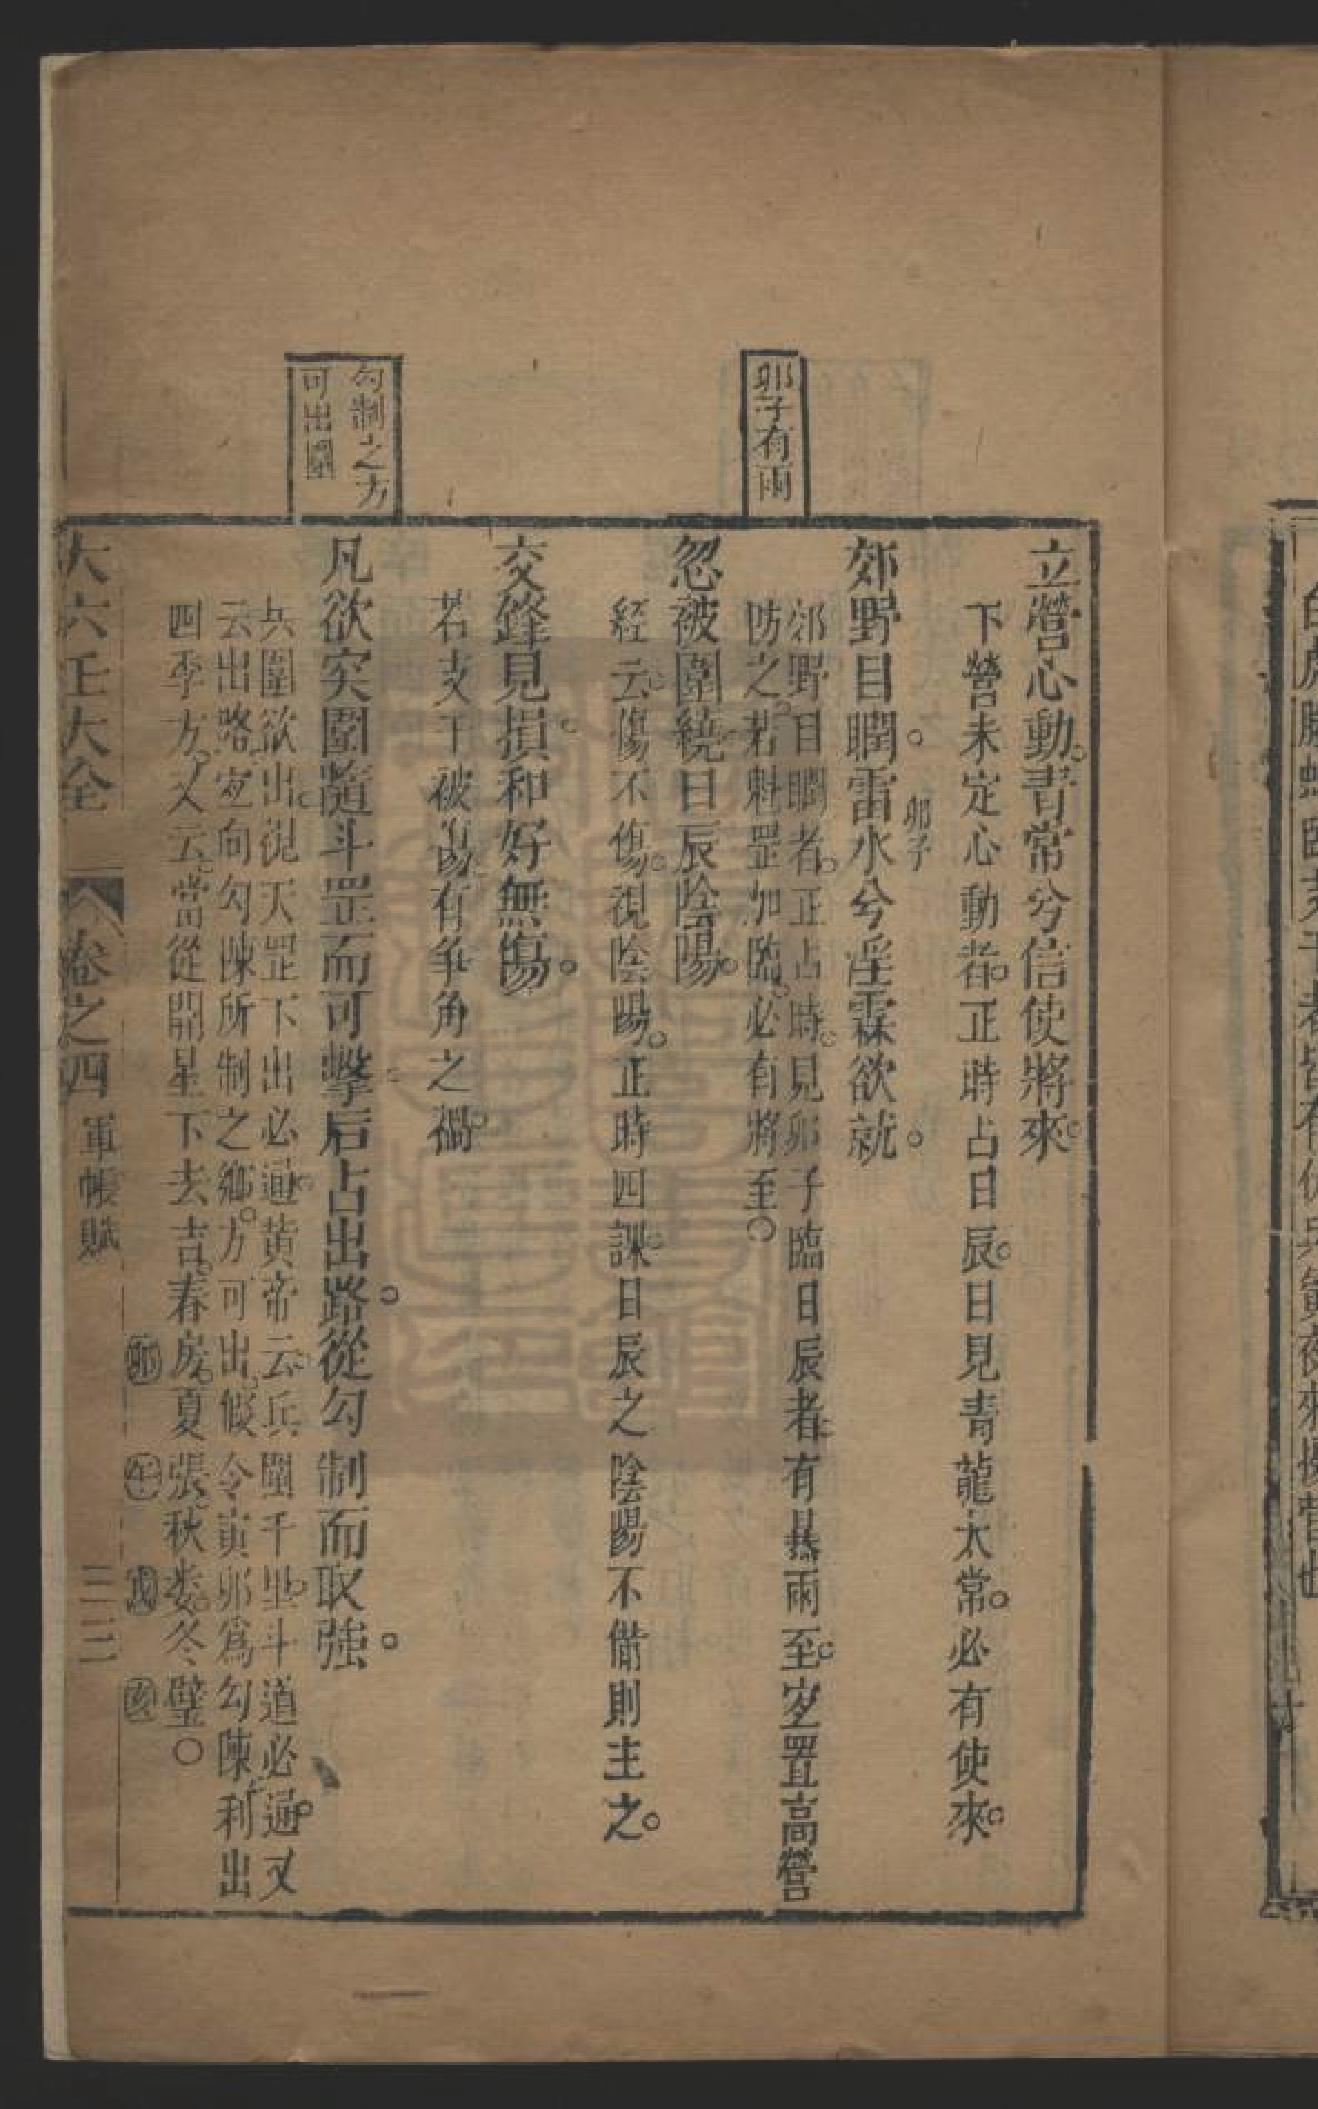 卯子有雨
勾制之方
可出圍
立營心動青常兮信使將來
下營未定心動者正時占日辰日見青龍太常必有使來
郊野目瞤雷水兮淫霖欲就
卯子
郊野目瞤者正占時見卯子臨日辰者有暴雨至宜置高營
防之若魁罡加臨必有將至○
忽被圍繞日辰陰陽
經云傷不傷視陰陽正時四課日辰之陰陽不備則主之
交鋒見損和好無傷
若支干被傷有爭角之禍
凡欲突圍隨斗罡而可擊后占出路從勾制而取強
兵圍欲出視天罡下出必通黃帝云兵圍千里斗道必通又
云出路宜向勾陳所制之鄉方可出假令寅卯爲勾陳利出
四季方又云當從關星下去吉春房夏張秋婁冬壁○
卯 午 戌 亥
大六壬大全 卷之四 軍帳賦 三二